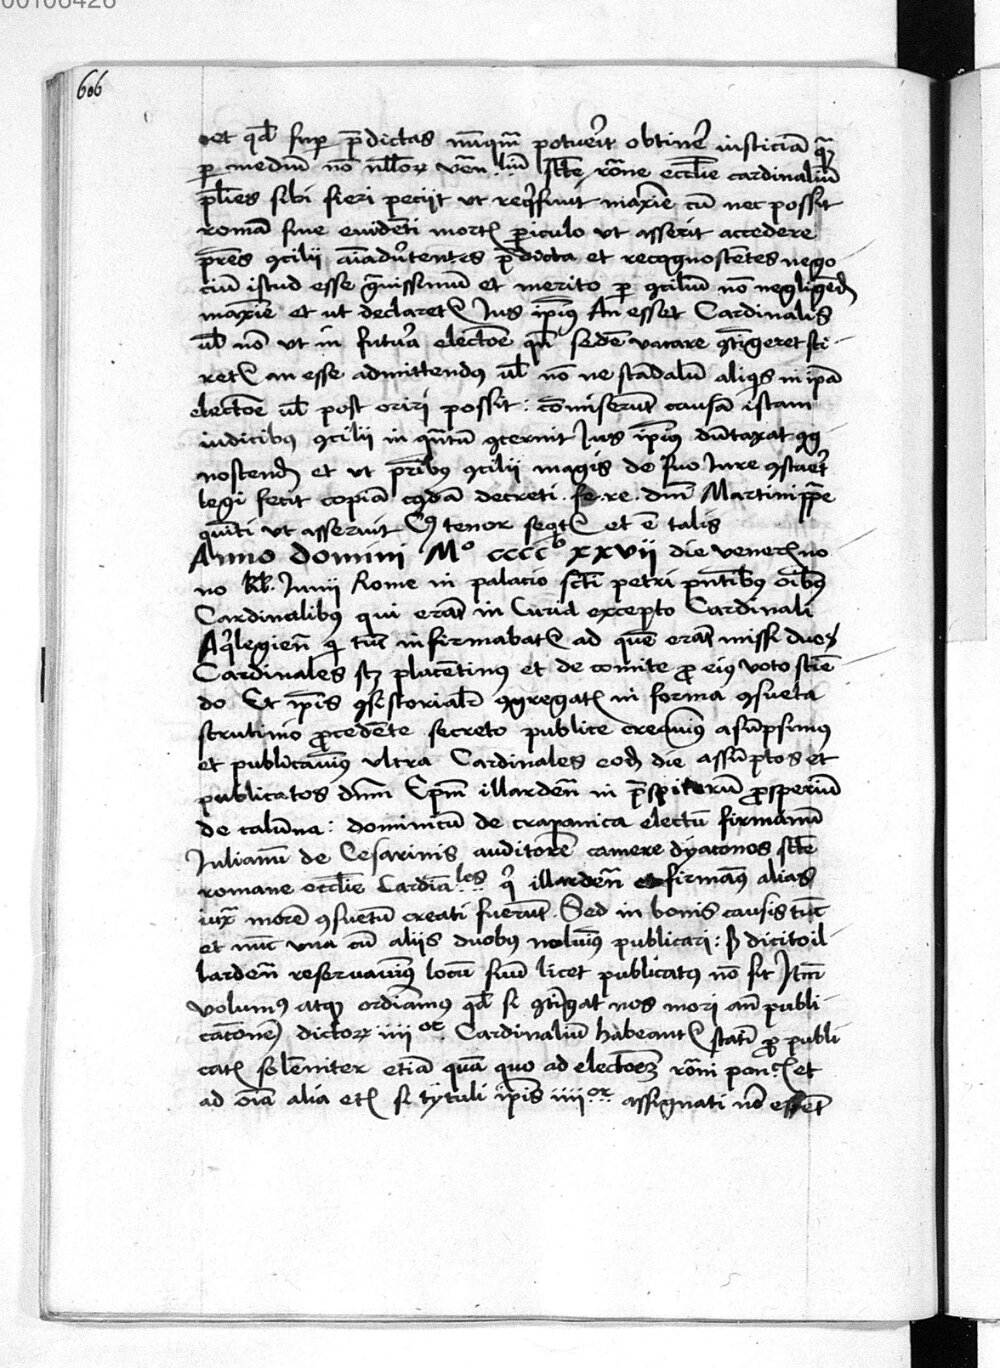 00106426
606
et qd sup p̄dictas nūqm̄ potuerit obtinē iusticiā
p mediū nō nllor ven. liū sctē rōne ecclīe cardinaliū
plīes sibi fieri peciit ut reqsiuit maxīe cū nec possit
romā sine euidēti mortȩ piculo ut asserit accedere
p̄res ꝯcilii aīaduertentes p̄dicta et recognoscētes nego
ciū istud esse grauissimū et merito p ꝯciliū nō negligēd
maxīe et ut declaretȩ Jus ipīus An esset Cardinalis
ul nō ut in futura electōe qn̄ sedē vacare ꝯtīgeret sci
retȩ an esse admittendus ul nō ne scādalū aliqs in ipā
electōe ul post oriri possit: cōmiserūt causā istam
iudicibus ꝯcilii in qntū ꝯcernit Jus ipīus dūtaxat ꝯg
noscend et ut p̄ribus ꝯcilii magis de suo Jure ꝯstaret
legi fecit copiā cqdā decreti fe. re. dn̄i Martini ppe
quīti ut asseruit Cꝰ tenor seqtȩ et ē talis
Anno domini Mo ccccº xxvii die venerꝭ no
no kl. Junii Rome in palacio sctī petri pn̄tibus oībus
Cardinalibus qui erāt in Curia excepto Cardinali
Aqlegien̄ q tūc infirmabatȩ ad quē erāt missi duo
Cardinales scz placētinus et de comite ꝓ eius voto sciē
do Et ipīs ꝯsistorialr ꝯgregatȩ in forma ꝯsueta
scrutinio ꝓcedēte secreto publice creauimus asūpsimus
et publicauimus ultra Cardinales eod die assūptos et
publicatos dnm̄ Epm̄ illarden̄ in p̄spiterū ꝓsperiū
de colūna: dominicū de crapanica electū firmanū
Julianū de Cesarinis auditorē camere dyaconos sctē
romane ecclīe Cardīales q illarden̄ firmanus alias
iux morē ꝯsuetū creati fuerūt. Sed in bonis causis tūc
et nūc vna cū aliis duobus noluimus publicari: ꝫ dicito il
larden̄ reseruauimus locū suū licet publicatus nō sit Jtm̄
volumus atqꝫ ordīamus qd si ꝯtīgat nos mori an̄ publi
catōnē dictor iiiior. Cardinaliū habeantȩ statī ꝓ publi
catȩ solēniter etiā quā quo ad electōeꝫ rōni pon.ȩ et
ad oīa alia etȩ si tytuli ipīs iiiior. assignati nō essēt